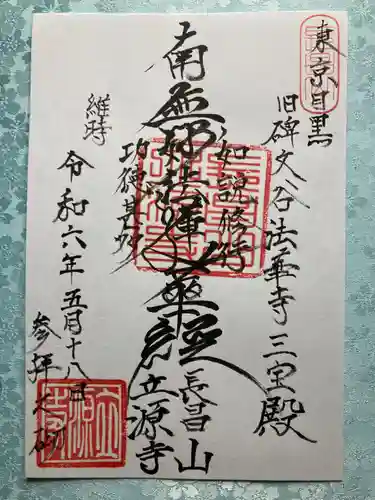 東京目黒
旧碑文谷法華寺三宝殿
如説修行
南無妙法蓮華経
功徳甚多
長昌山
立源寺
維時
令和六年五月十八日
参拝之砌
立源寺